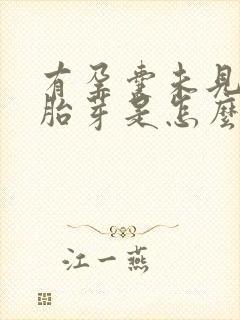 有孕囊未见
胎芽是怎麽
江一燕